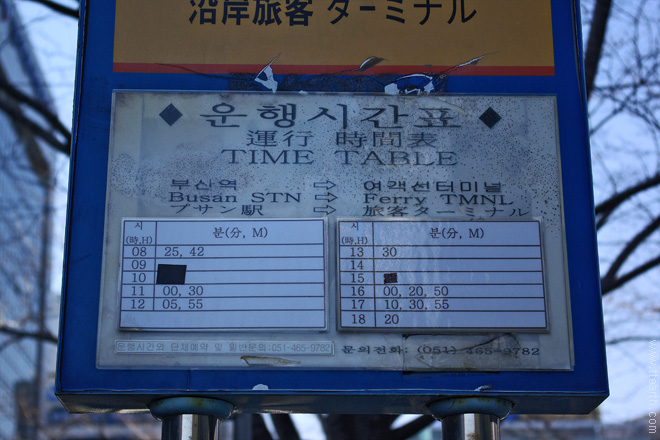 沿岸旅客 ターミナル
◆ 운행시간표 ◆
運行 時間表
TIME TABLE
부산역 ⇨ 여객선터미널
Busan STN ⇨ Ferry TMNL
プサン駅 ⇨ 旅客ターミナル
시(時,H) 분(分, M)
08 25, 42
09
10
11 00, 30
12 05, 55
시(時,H) 분(分, M)
13 30
14
15
16 00, 20, 50
17 10, 30, 55
18 20
운행시간외 단체예약 및 황반문의:051-465-9782
문의전화: (051) 465-9782